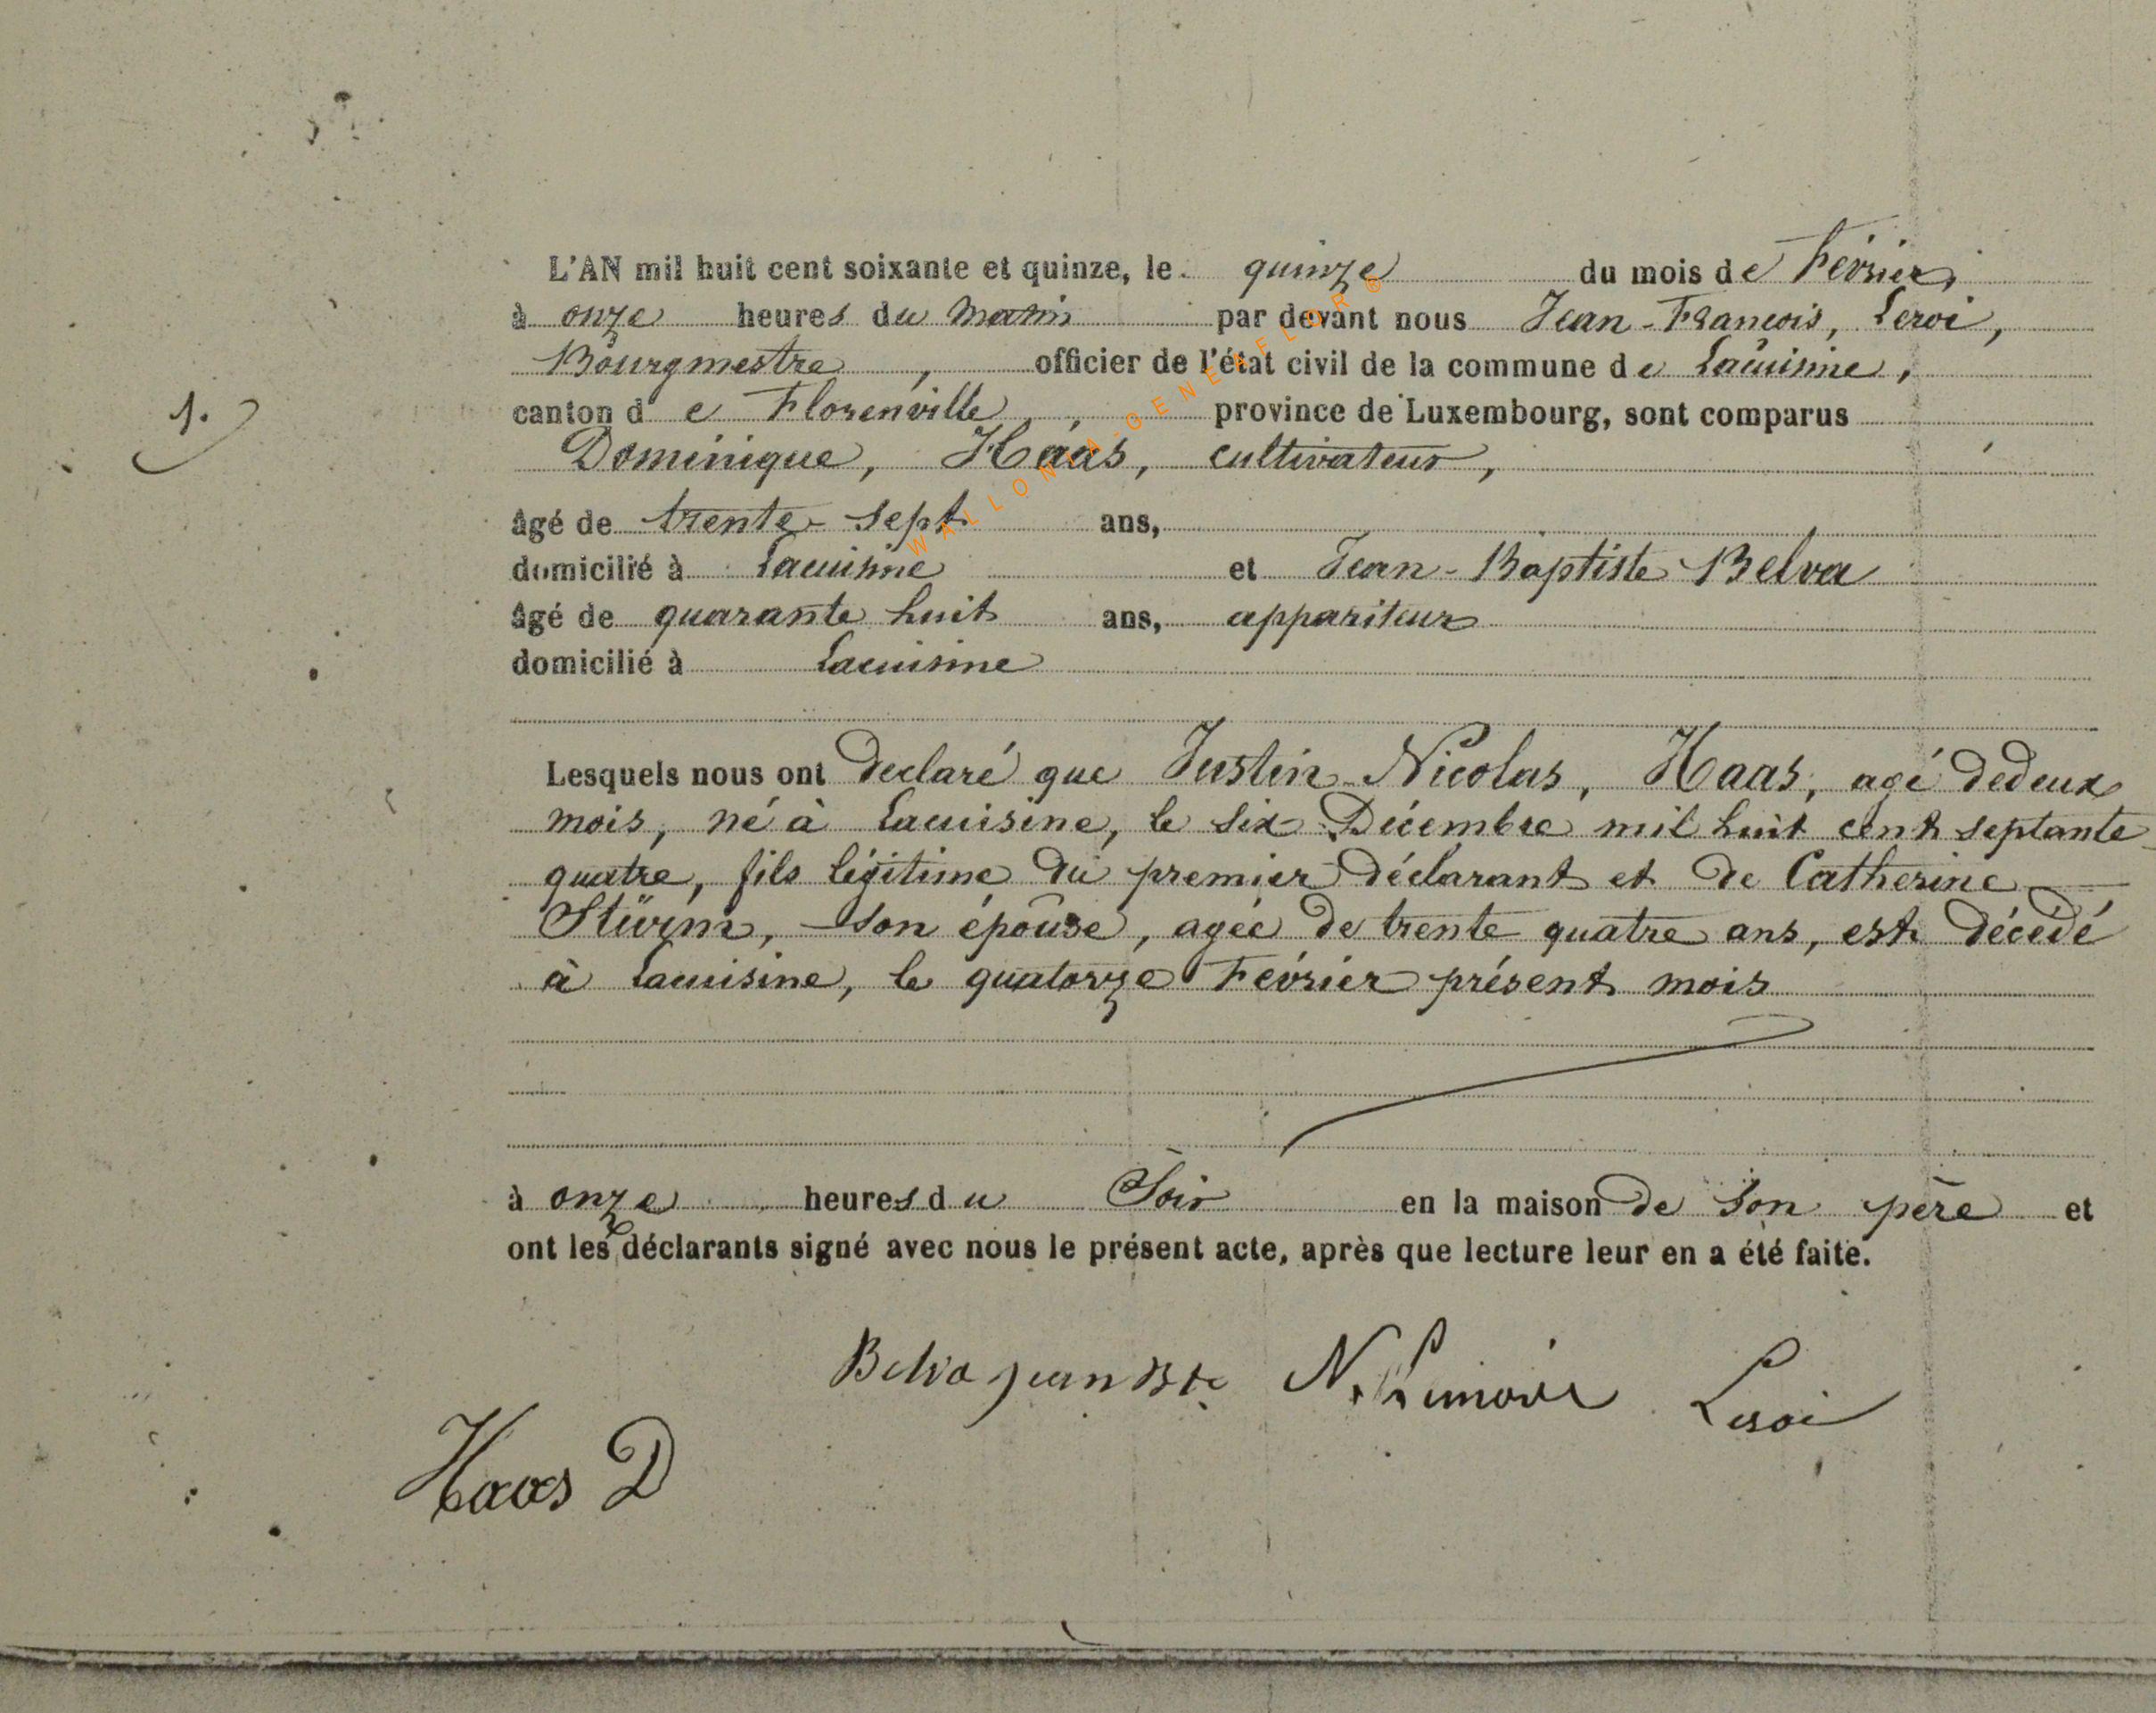 L'AN mil huit cent soixante et quinze, le quinze du mois de Février,
à onze heures du matin par devant nous Jean-François, Leroi,
Bourgmestre, officier de l'état civil de la commune de Lacuisine,
1.
canton de Florenville, province de Luxembourg, sont comparus
Dominique, Haas, cultivateur,
âgé de trente-sept ans,
domicilié à Lacuisine et Jean-Baptiste Belva
âgé de quarante huit ans, appariteur
domicilié à Lacuisine
Lesquels nous ont declaré que Justin-Nicolas, Haas, agé de deux
mois, né à Lacuisine, le six Décembre mil huit cent septante
quatre, fils légitime du premier déclarant et de Catherine
Stürm, son épouse, agée de trente quatre ans, est décédé
à Lacuisine, le quatorze Février présent mois
à onze heures du Soir en la maison de son père et
ont les déclarants signé avec nous le présent acte, après que lecture leur en a été faite.
Belva jean Bte N. Leroi
Haas D
WALLONIA-GENEFLOR®